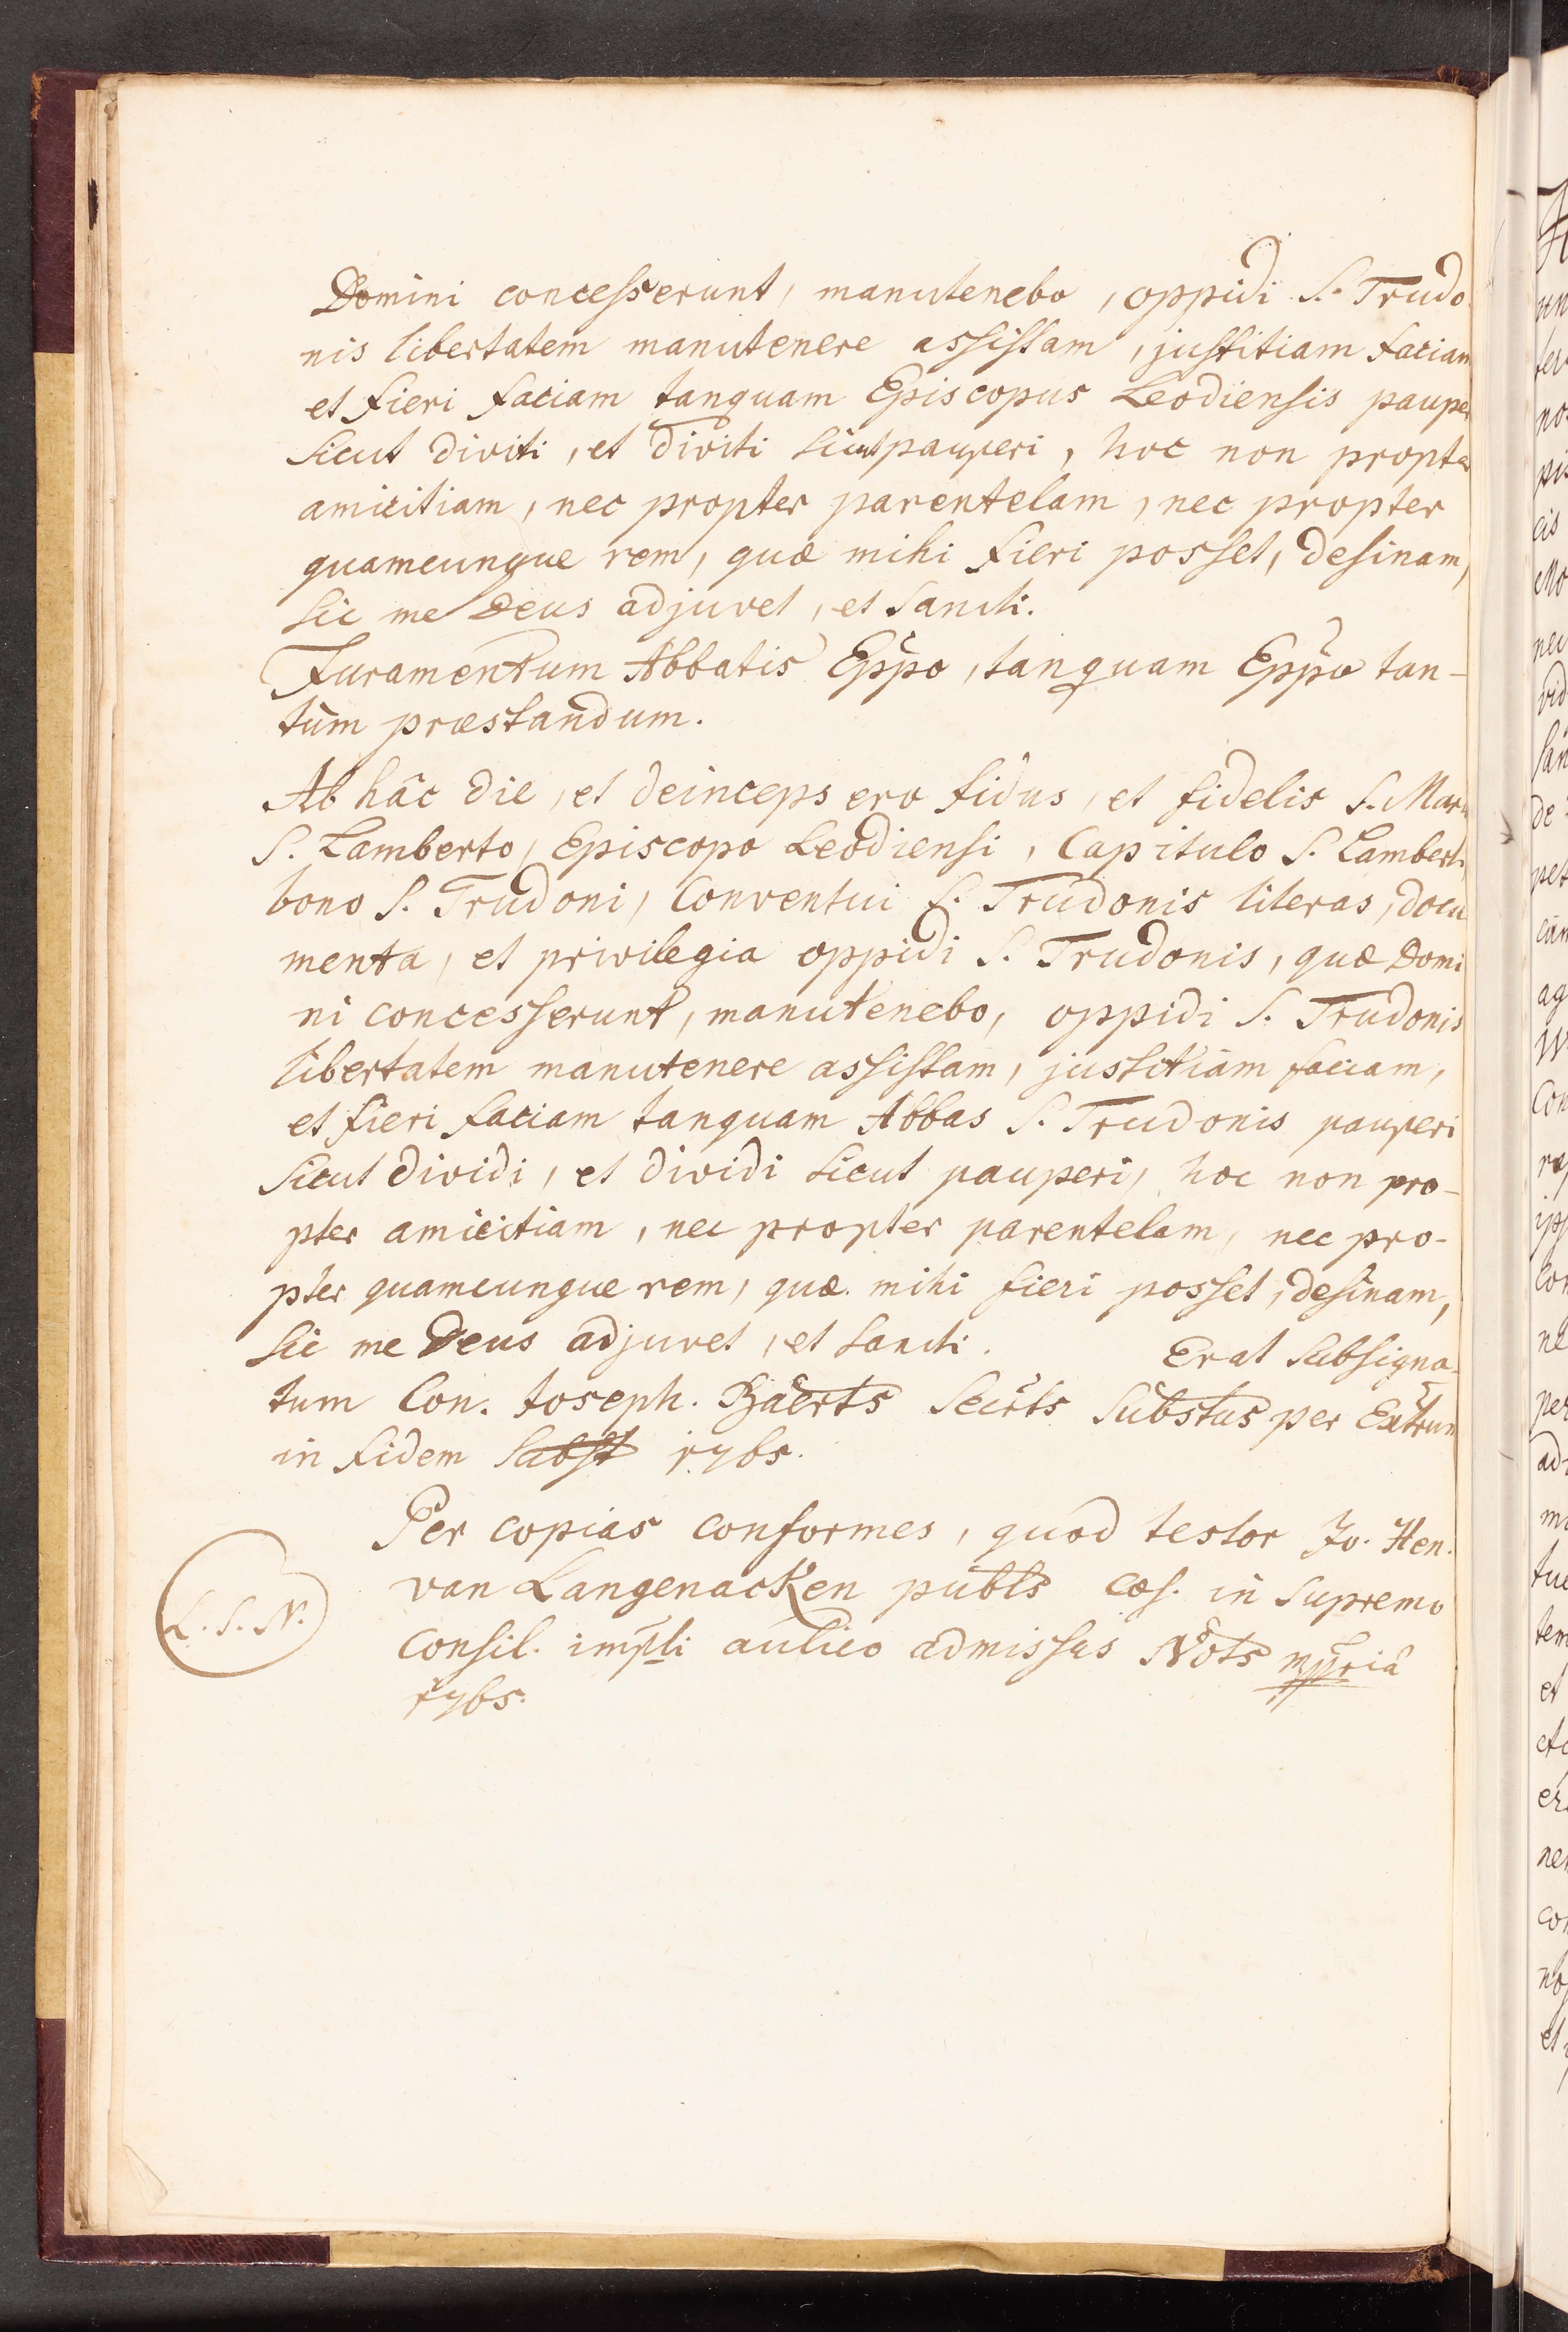 Domini concesserunt, manutenebo, oppidi S. Trudo
nis libertatem manutenere assistam, justitiam faciam
et fieri faciam tanquam Episcopus Leodiensis pauper
sicut diviti, et diviti sicut pauperi, hoc non propter
amicitiam, nec propter parentelam, nec propter
quamcunque rem, quæ mihi fieri posset, desinam,
sic me Deus adjuvet, et Sancti.
Juramentum Abbatis Eppo, tanquam Eppo tan-
tùm præstandum.
Ab hâc die, et deinceps ero fidus, et fidelis S. Mari
S. Lamberto, Episcopo Leodiensi, Capitulo S. Lamberti
bono S. Trudoni, Conventui S. Trudonis literas, docu
menta, et privilegia oppidi S. Trudonis, quæ Domi
ni concesserunt, manutenebo, oppidi S. Trudonis
libertatem manutenere assistam, justitiam faciam,
et fieri faciam tanquam Abbas S. Trudonis pauperi
sicut dividi, et dividi sicut pauperi, hoc non pro-
pter amicitiam, nec propter parentelam, nec pro-
pter quamcunque rem, quæ mihi fieri posset, desinam,
sic me Deus adjuvet, et sancti. Erat Subsigna-
tum Con. Joseph. Baerts Secrts Substus per Extrum
in fidem Subst rybs.
Per copias conformes, quod testor Jo. Hen.
van Langenacken publs cæs. in Supremo
L. S. N.
Consil. impli aulico admissus Nots mpriâ
rybs.